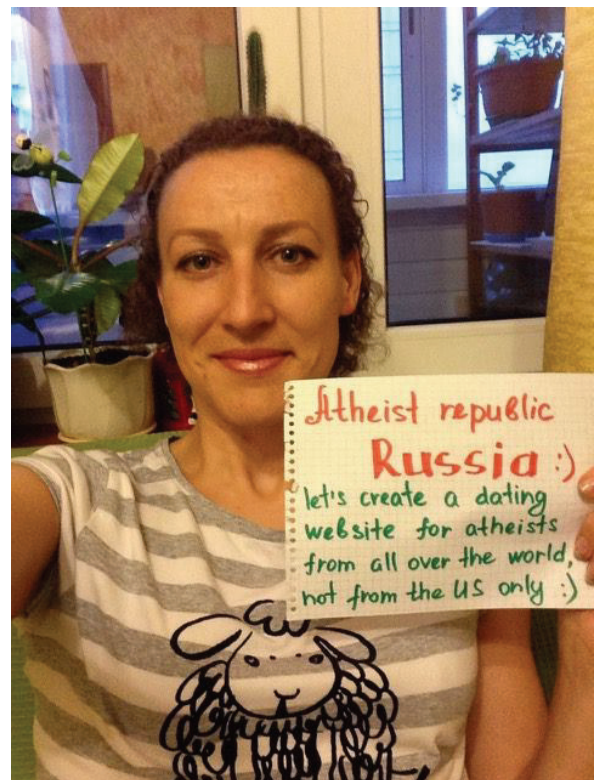 Atheist republic
Russia :)
let's create a dating
website for atheists
from all over the world,
not from the US only :)